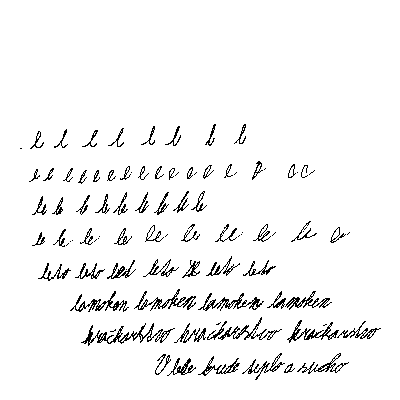 l l l l l l l l
e e e e e e e e e e e e e
le le le le le le le le le
le le le le le le le le le
leto leto leto leto leto leto
lamoken lamoken lamoken lamoken
hračkarstvo hračkarstvo hračkarstvo
V lete bude teplo a sucho